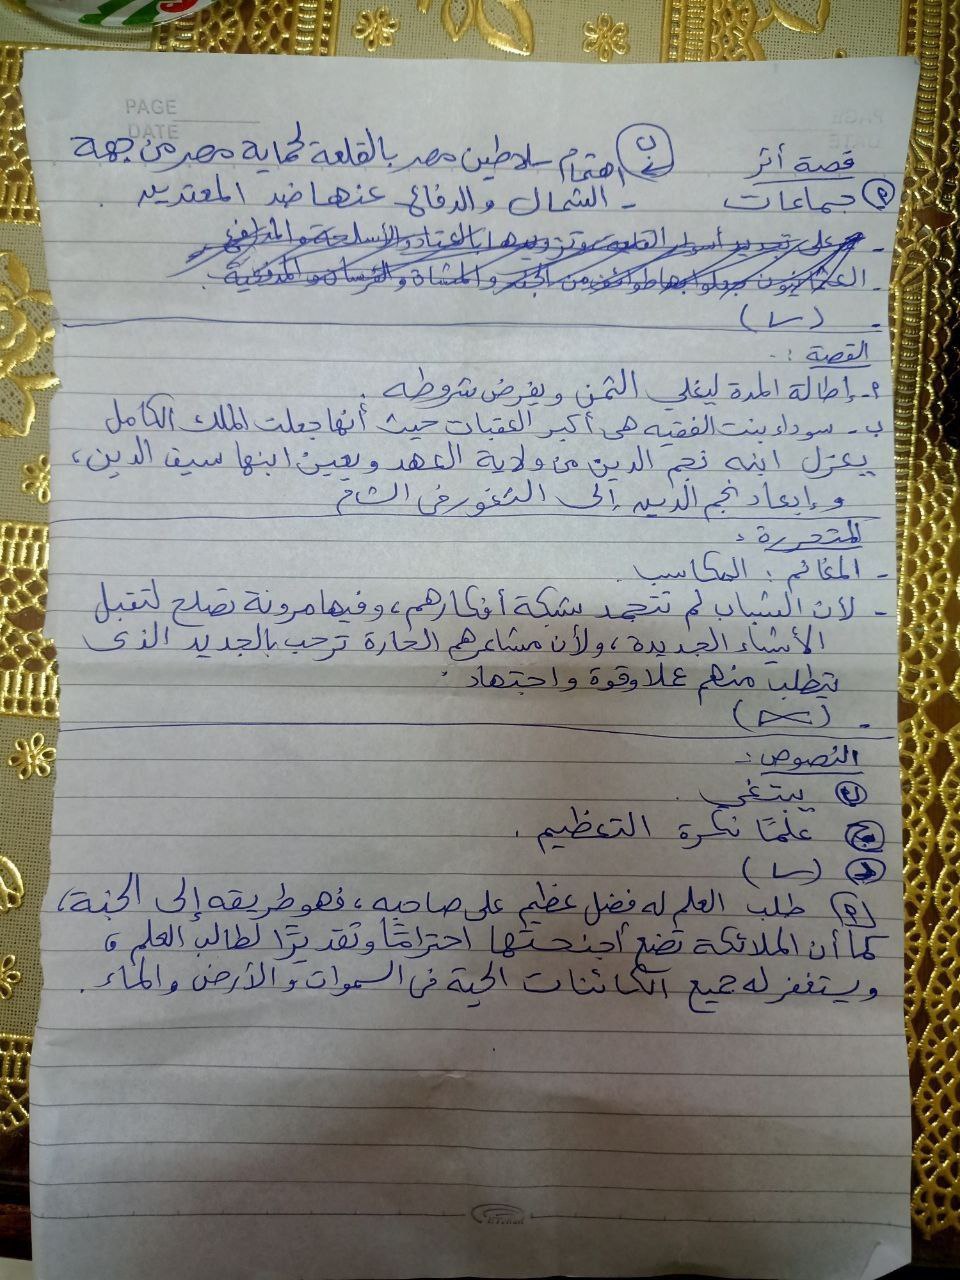 PAGE
DATE
قصة أثر
ب اهتمام سلاطين مصر بالقلعة لحماية مصر من جهة
أ جماعات - الشمال والدفاع عنها ضد المعتدين .
- على تجديد أسوار القلعة وتزويدها بالعتاد والأسلحة والمدافع
- العثمانيون جعلوا بها طوائف من الجند والمشاة والفرسان والمدفعية .
- (✓)
القصة :-
أ- إطالة المدة ليغلي الثمن ويفرض شروطه .
ب- سوداء بنت الفقيه هى أكبر العقبات حيث أنها جعلت الملك الكامل
يعزل ابنه نجم الدين من ولاية العهد ويعين ابنها سيف الدين،
وإبعاد نجم الدين إلى الثغور فى الشام
المتحررة :
- المغانم : المكاسب .
- لأن الشباب لم تتجمد شبكة أفكارهم، وفيها مرونة تصلح لتقبل
الأشياء الجديدة، ولأن مشاعرهم الحارة ترحب بالجديد الذى
يتطلب منهم عملا وقوة واجتهاد .
- (✗)
النصوص :-
ب يبتغي .
ج علمًا نكرة التعظيم .
د (✓)
أ طلب العلم له فضل عظيم على صاحبه، فهو طريقه إلى الجنة،
كما أن الملائكة تضع أجنحتها احترامًا وتقديرًا لطالب العلم،
ويستغفر له جميع الكائنات الحية فى السموات والأرض والماء .